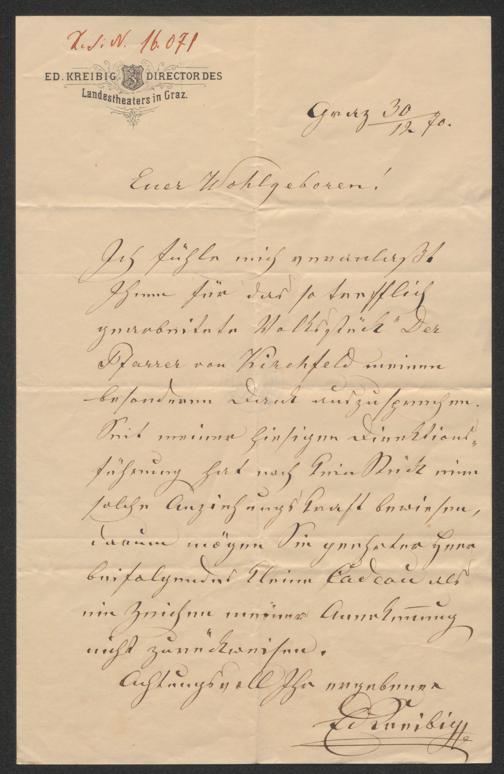 I. N. 16.071
ED. KREIBIG DIRECTOR DES
Landestheaters in Graz.
Graz 30/12 70.
Euer Wohlgeboren!
Ich fühle mich veranlaßt
Ihnen für das so trefflich
gearbeitete Volksstück "Der
Pfarrer von Kirchfeld meinen
besonderen Dank auszusprechen.
Seit meiner hiesigen Direktions-
führung hat noch kein Stück eine
solche Anziehungskraft bewiesen,
darum mögen Sie geehrter Herr
beifolgendes kleine Cadeau als
ein Zeichen meiner Anerkennung
nicht zurückweisen.
Achtungsvoll Ihr ergebener
Ed Kreibig